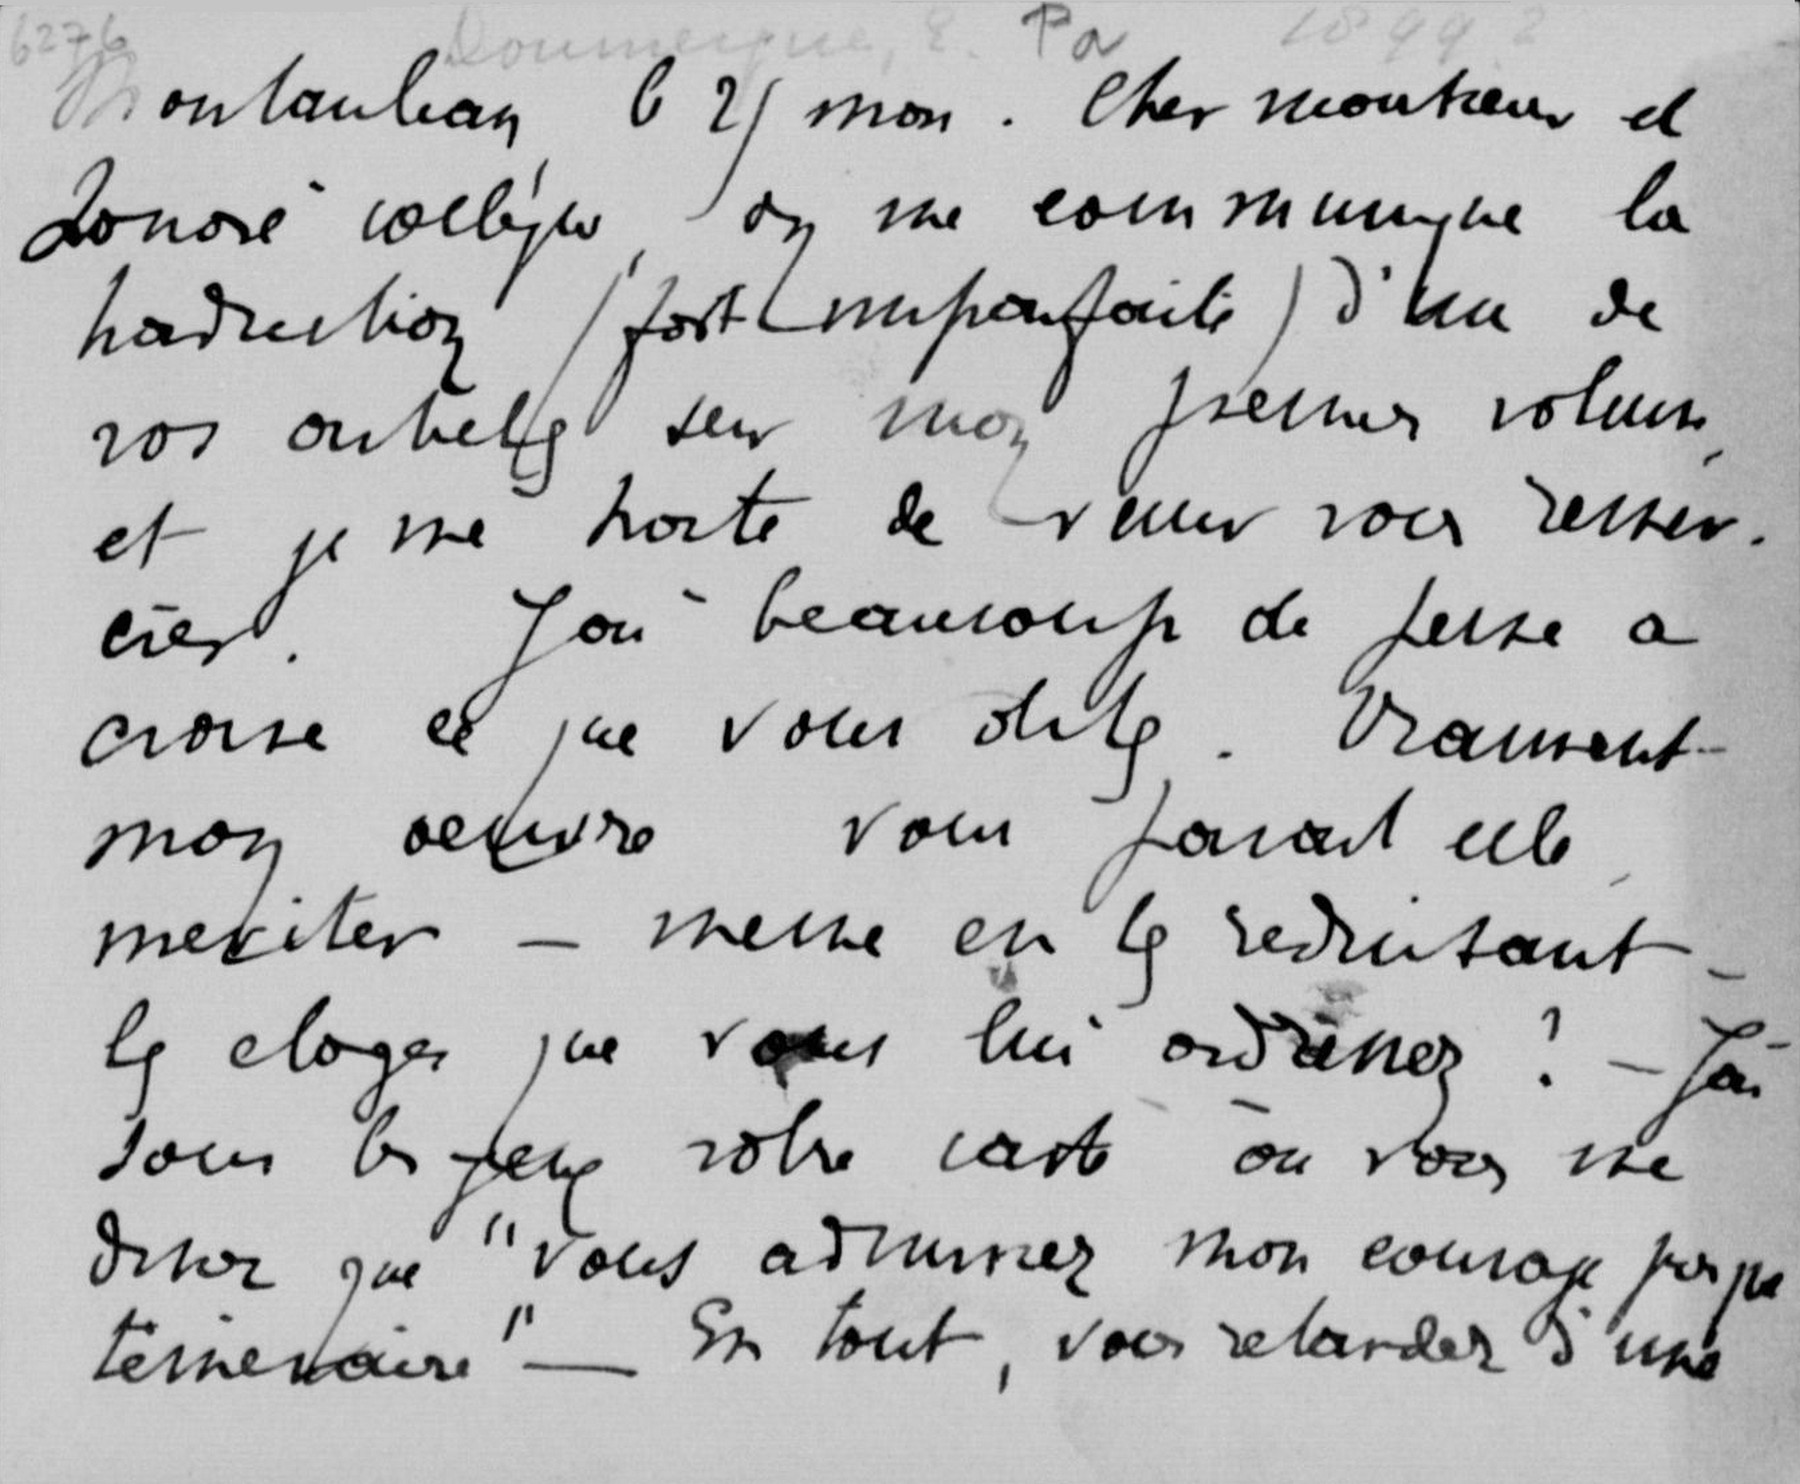 6276 Doumergue, E. Pa 1899?
Montauban le 25 mars. Cher monsieur et
honoré collègue, on me communique la
traduction (fort imparfaite) d'un de
vos articles sur mon premier volume,
et je me hate de venir vous remer-
cier. J'ai beaucoup de peine a
croire ce que vous dites. Vraiment
mon oeuvre vous parait elle
meriter — meme en les reduisant —
les eloges que vous lui adressez? — J'ai
sous les yeux votre carte où vous me
disiez que "vous admiriez mon courage presque
temeraire" — En tout, vous retardez d'une